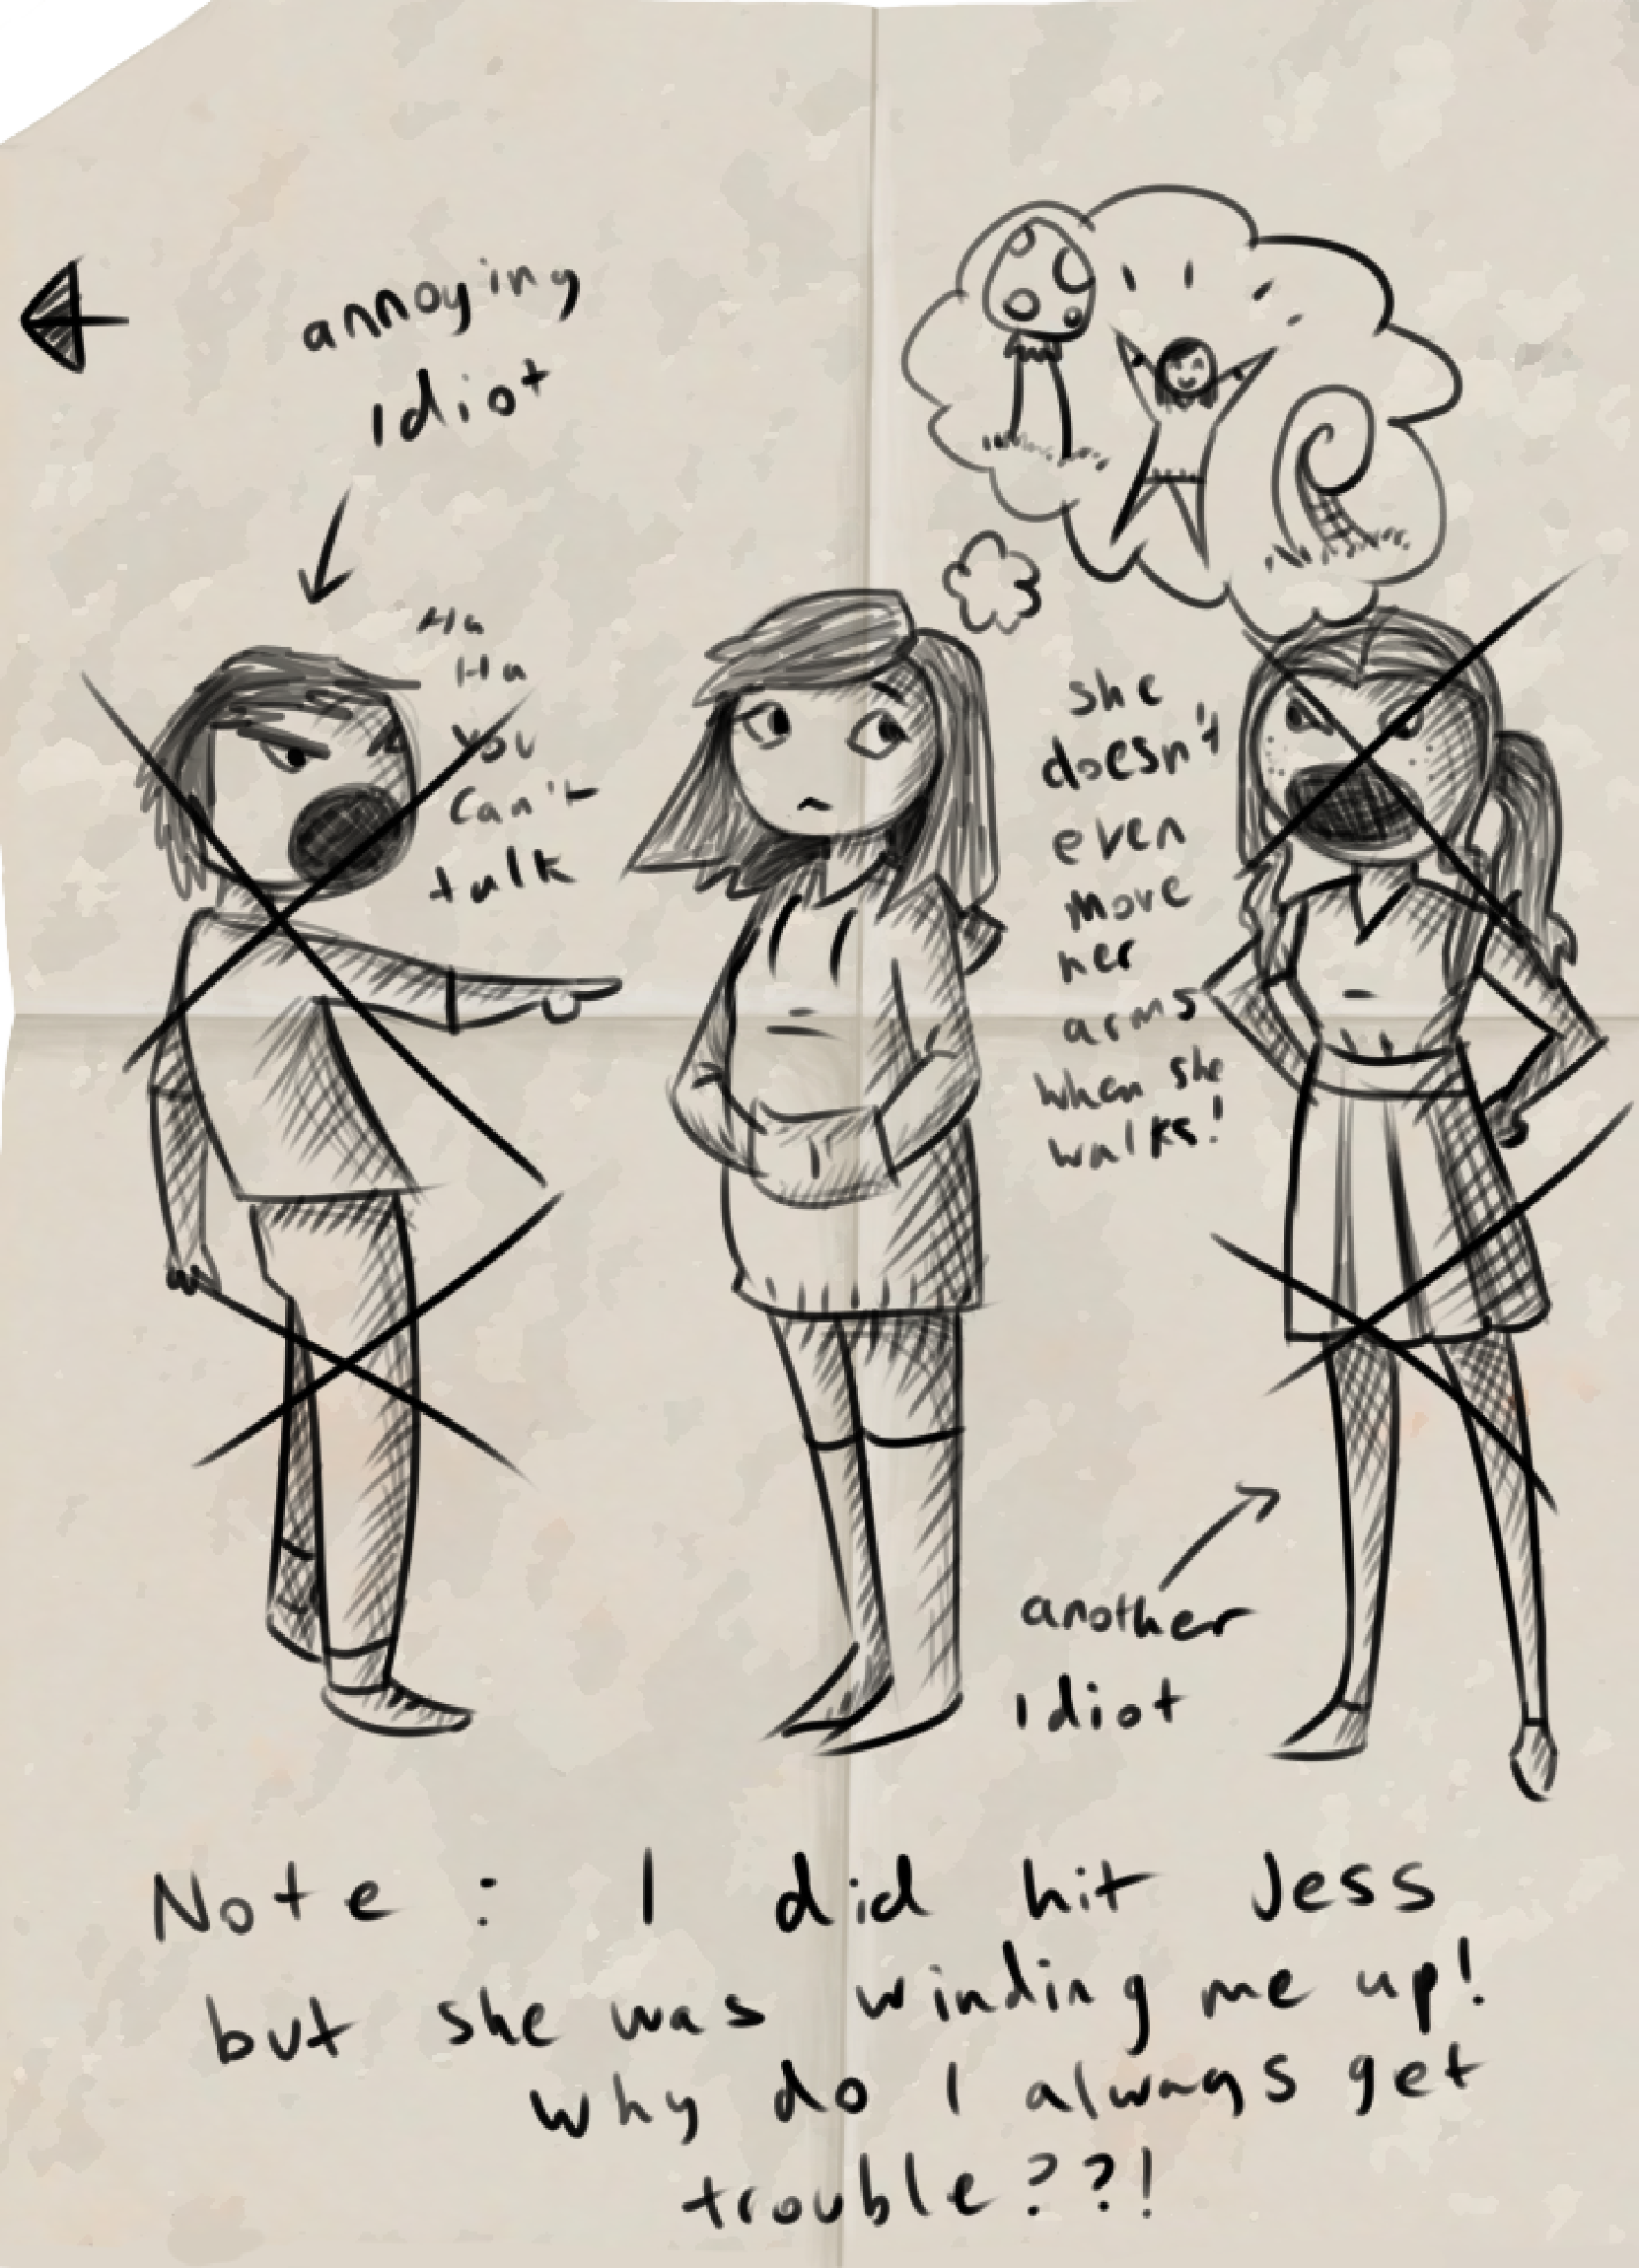 annoying
Idiot
Ha
Ha
You
Can't
talk
she
doesn't
even
move
her
arms
when she
walks!
another
Idiot
Note : I did hit Jess
but she was winding me up!
why do I always get
trouble??!